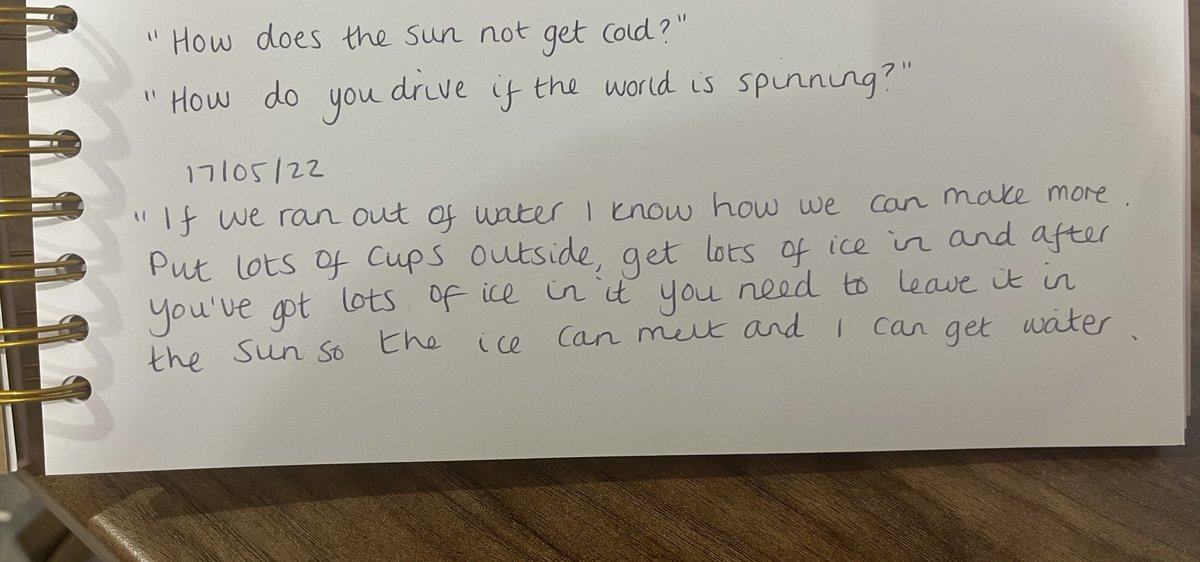 "How does the sun not get cold?"
"How do you drive if the world is spinning?"
17/05/22
"If we ran out of water I know how we can make more.
Put lots of cups outside, get lots of ice in and after
you've got lots of ice in it you need to leave it in
the sun so the ice can melt and I can get water.